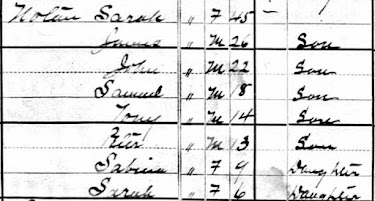 Nolan Sarah " F 45 —
James " M 26 Son
John " M 22 Son
Samuel " M 18 Son
Tony " M 14 Son
" M 13 Son
Sabina " F 9 Daughter
Sarah " F 6 Daughter